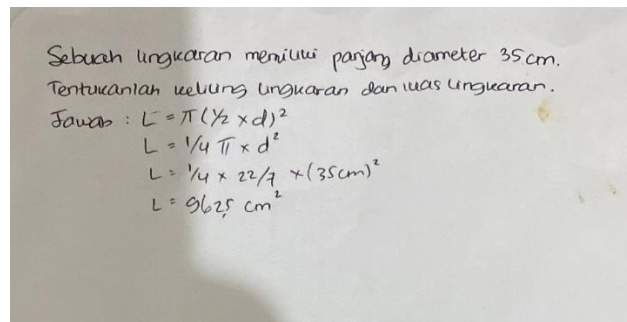 Sebuah lingkaran memiliki panjang diameter 35 cm.
Tentukanlah keliling lingkaran dan luas lingkaran.
Jawab : L = π (1/2 × d)²
L = 1/4 π × d²
L = 1/4 × 22/7 × (35cm)²
L = 962,5 cm²